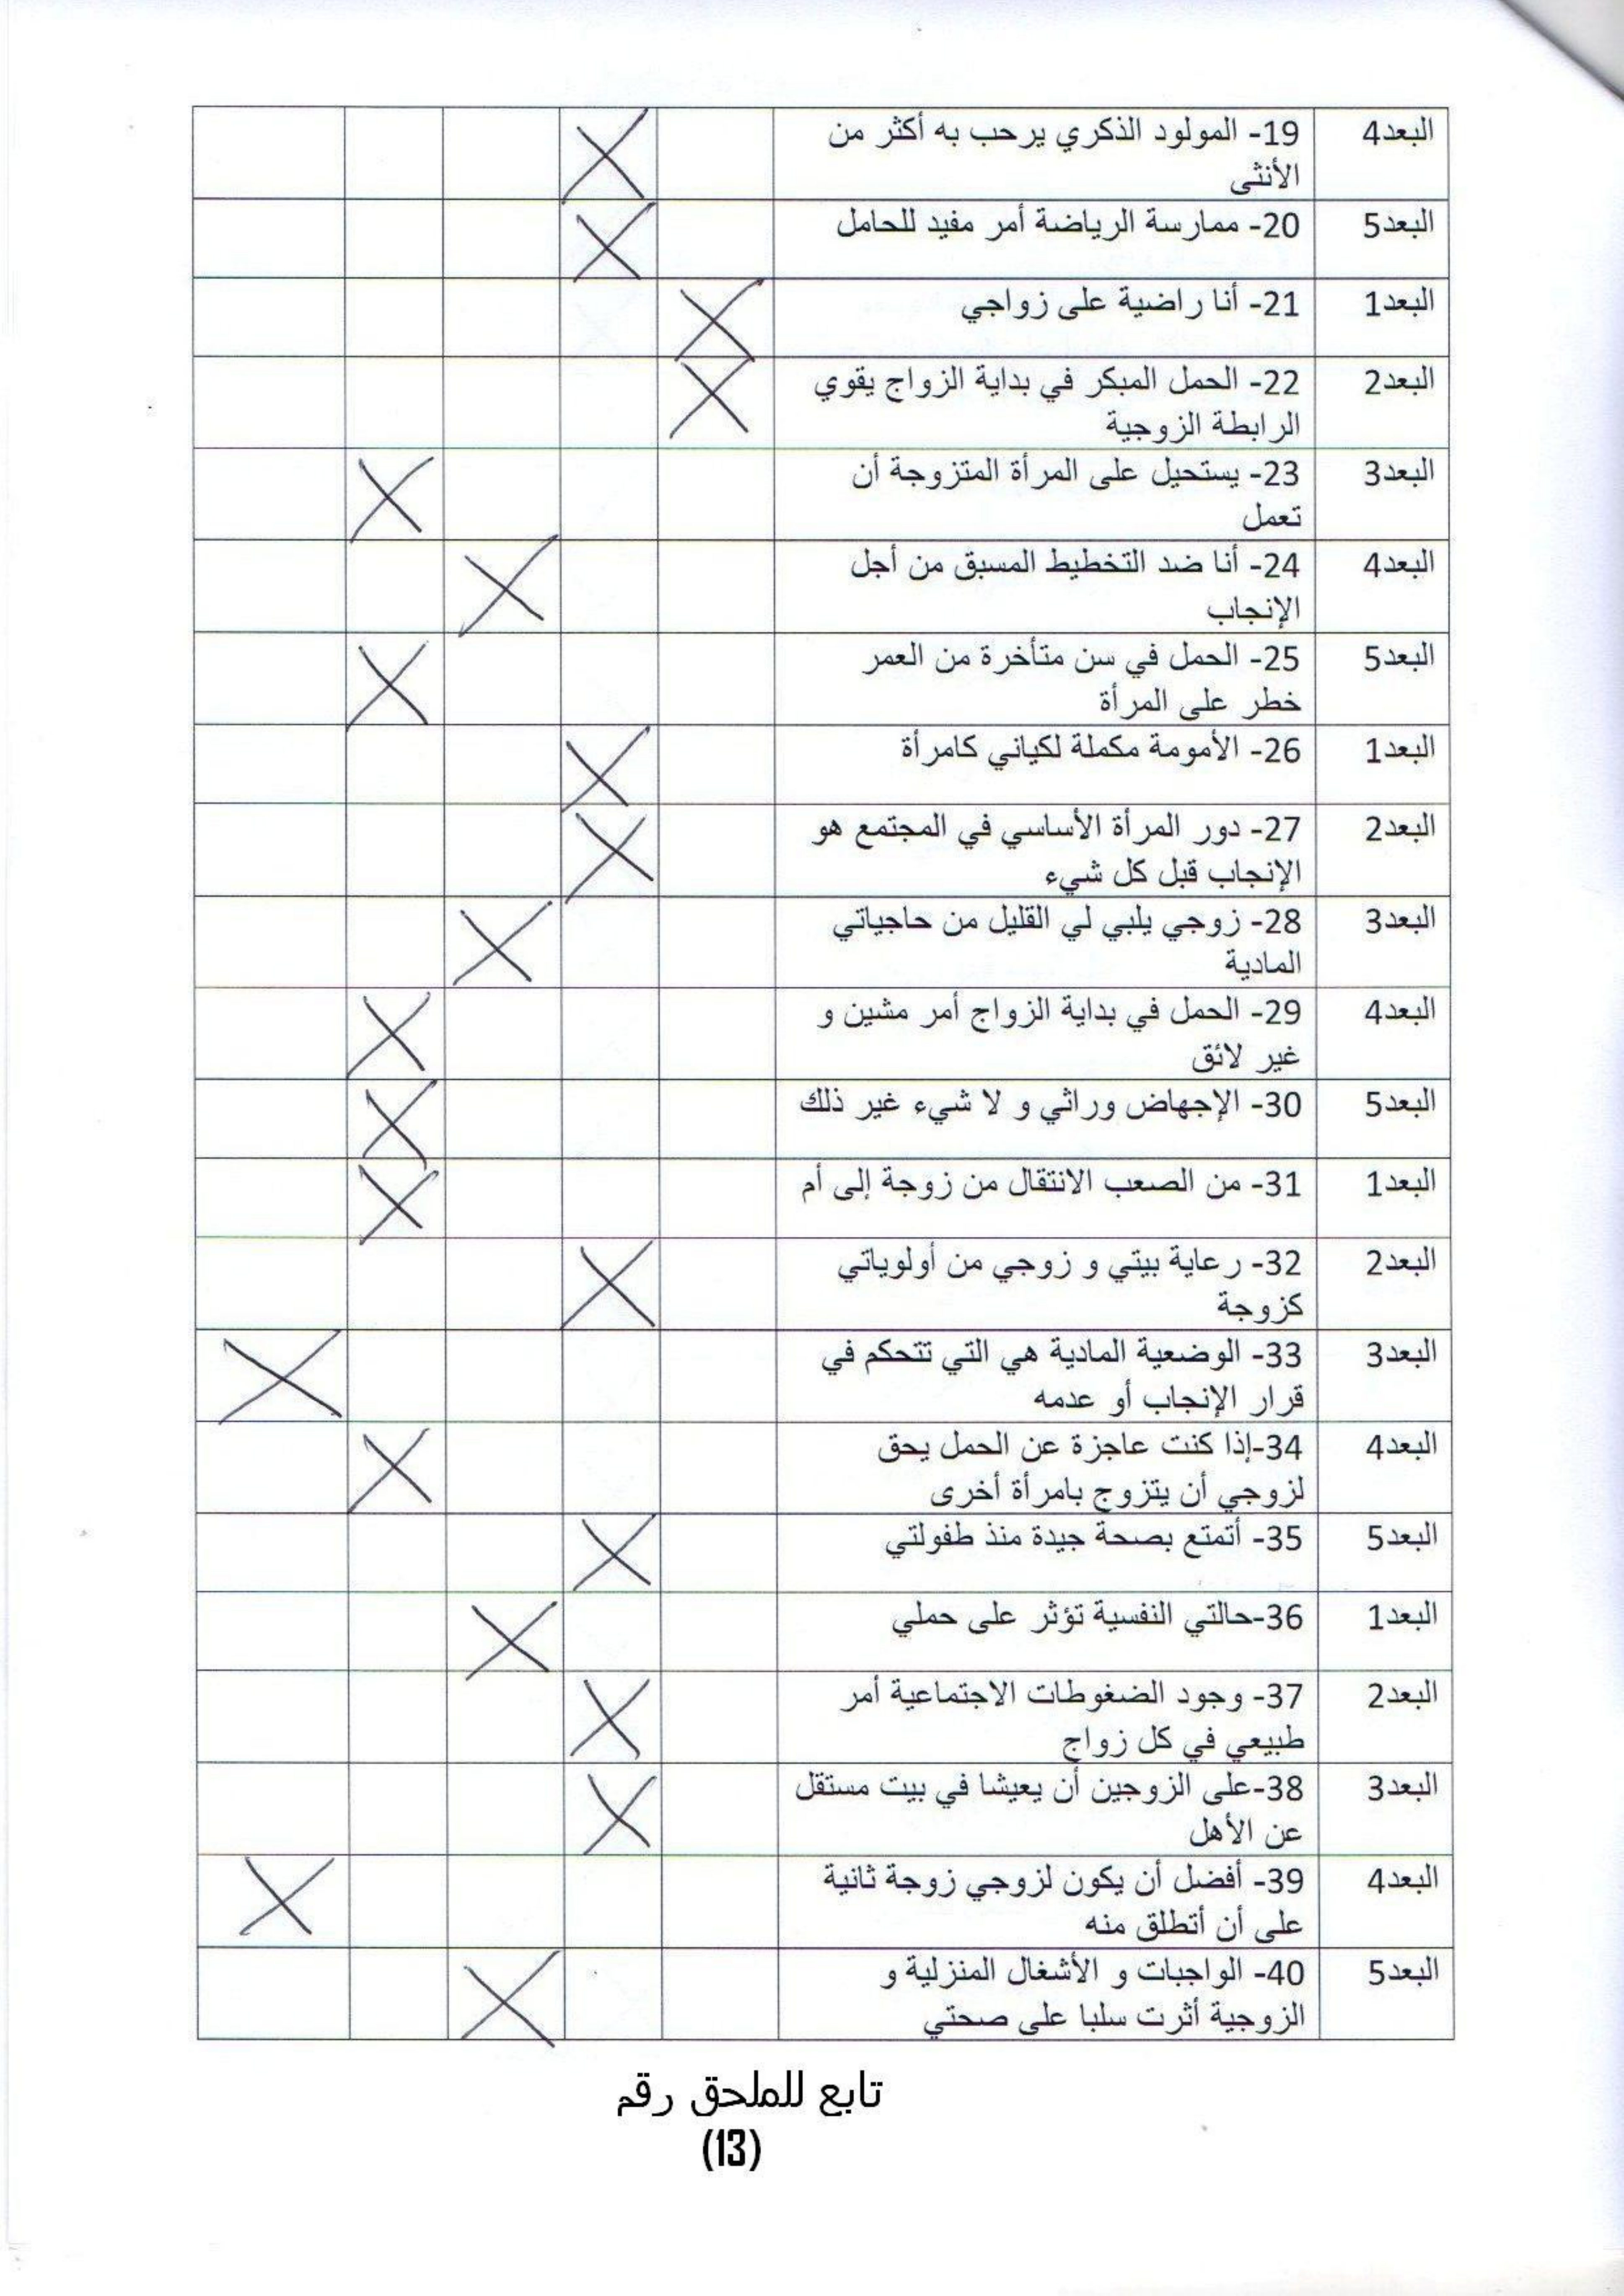 البعد4 19- المولود الذكري يرحب به أكثر من
الأنثى
البعد5 20- ممارسة الرياضة أمر مفيد للحامل
البعد1 21- أنا راضية على زواجي
البعد2 22- الحمل المبكر في بداية الزواج يقوي
الرابطة الزوجية
البعد3 23- يستحيل على المرأة المتزوجة أن
تعمل
البعد4 24- أنا ضد التخطيط المسبق من أجل
الإنجاب
البعد5 25- الحمل في سن متأخرة من العمر
خطر على المرأة
البعد1 26- الأمومة مكملة لكياني كامرأة
البعد2 27- دور المرأة الأساسي في المجتمع هو
الإنجاب قبل كل شيء
البعد3 28- زوجي يلبي لي القليل من حاجياتي
المادية
البعد4 29- الحمل في بداية الزواج أمر مشين و
غير لائق
البعد5 30- الإجهاض وراثي و لا شيء غير ذلك
البعد1 31- من الصعب الانتقال من زوجة إلى أم
البعد2 32- رعاية بيتي و زوجي من أولوياتي
كزوجة
البعد3 33- الوضعية المادية هي التي تتحكم في
قرار الإنجاب أو عدمه
البعد4 34-إذا كنت عاجزة عن الحمل يحق
لزوجي أن يتزوج بامرأة أخرى
البعد5 35- أتمتع بصحة جيدة منذ طفولتي
البعد1 36-حالتي النفسية تؤثر على حملي
البعد2 37- وجود الضغوطات الاجتماعية أمر
طبيعي في كل زواج
البعد3 38-على الزوجين أن يعيشا في بيت مستقل
عن الأهل
البعد4 39- أفضل أن يكون لزوجي زوجة ثانية
على أن أتطلق منه
البعد5 40- الواجبات و الأشغال المنزلية و
الزوجية أثرت سلبا على صحتي
تابع للملحق رقم
(13)